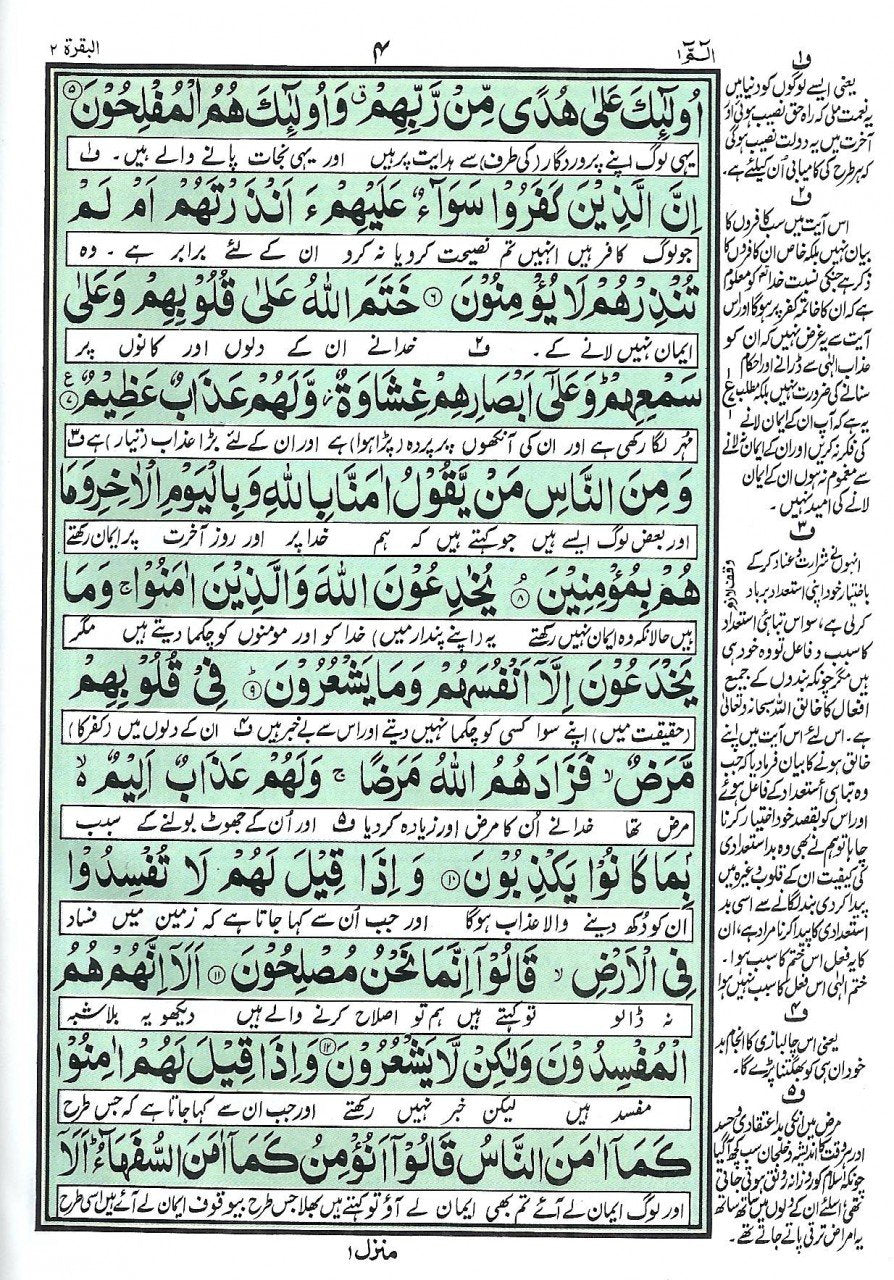 الٓمّٓ ۱
۴
البقرة ۲
اُولٰٓئِكَ عَلٰى هُدًى مِّنْ رَّبِّهِمْ ۗ وَاُولٰٓئِكَ هُمُ الْمُفْلِحُوْنَ ۵
یہی لوگ اپنے پروردگار (کی طرف) سے ہدایت پر ہیں اور یہی نجات پانے والے ہیں۔ ف۱
اِنَّ الَّذِيْنَ كَفَرُوْا سَوَآءٌ عَلَيْهِمْ ءَاَنْذَرْتَهُمْ اَمْ لَمْ
جو لوگ کافر ہیں انہیں تم نصیحت کرو یا نہ کرو ان کے لئے برابر ہے۔ وہ
تُنْذِرْهُمْ لَا يُؤْمِنُوْنَ ۶ خَتَمَ اللّٰهُ عَلٰى قُلُوْبِهِمْ وَعَلٰى
ایمان نہیں لانے کے۔ ف۲ خدا نے ان کے دلوں اور کانوں پر
سَمْعِهِمْ ؕ وَعَلٰٓى اَبْصَارِهِمْ غِشَاوَةٌ ز وَّلَهُمْ عَذَابٌ عَظِيْمٌ ۷ ع
مُہر لگا رکھی ہے اور ان کی آنکھوں پر پردہ (پڑا ہوا) ہے اور ان کے لئے بڑا عذاب (تیار) ہے ف۳
وَمِنَ النَّاسِ مَنْ يَّقُوْلُ اٰمَنَّا بِاللّٰهِ وَبِالْيَوْمِ الْاٰخِرِ وَمَا
اور بعض لوگ ایسے ہیں جو کہتے ہیں کہ ہم خدا پر اور روز آخرت پر ایمان رکھتے
هُمْ بِمُؤْمِنِيْنَ ۘ ۸ يُخٰدِعُوْنَ اللّٰهَ وَالَّذِيْنَ اٰمَنُوْا ۚ وَمَا
ہیں حالانکہ وہ ایمان نہیں رکھتے یہ (اپنے پندار میں) خدا کو اور مومنوں کو چکما دیتے ہیں مگر
يَخْدَعُوْنَ اِلَّآ اَنْفُسَهُمْ وَمَا يَشْعُرُوْنَ ؕ ۹ فِيْ قُلُوْبِهِمْ
(حقیقت میں) اپنے سوا کسی کو چکما نہیں دیتے اور اس سے بے خبر ہیں ف۴ ان کے دلوں میں (کفر کا)
مَّرَضٌ ۙ فَزَادَهُمُ اللّٰهُ مَرَضًا ۚ وَلَهُمْ عَذَابٌ اَلِيْمٌ ۙ
مرض تھا خدا نے اُن کا مرض اور زیادہ کر دیا ف۵ اور اُن کے جھوٹ بولنے کے سبب
بِمَا كَانُوْا يَكْذِبُوْنَ ۱۰ وَاِذَا قِيْلَ لَهُمْ لَا تُفْسِدُوْا
اُن کو دُکھ دینے والا عذاب ہوگا اور جب اُن سے کہا جاتا ہے کہ زمین میں فساد
فِي الْاَرْضِ ۙ قَالُوْٓا اِنَّمَا نَحْنُ مُصْلِحُوْنَ ۱۱ اَلَآ اِنَّهُمْ هُمُ
نہ ڈالو تو کہتے ہیں ہم تو اصلاح کرنے والے ہیں دیکھو یہ بلاشبہ
الْمُفْسِدُوْنَ وَلٰكِنْ لَّا يَشْعُرُوْنَ ۱۲ وَاِذَا قِيْلَ لَهُمْ اٰمِنُوْا
مفسد ہیں لیکن خبر نہیں رکھتے اور جب ان سے کہا جاتا ہے کہ جس طرح
كَمَآ اٰمَنَ النَّاسُ قَالُوْٓا اَنُؤْمِنُ كَمَآ اٰمَنَ السُّفَهَآءُ ؕ اَلَآ
اور لوگ ایمان لے آئے تم بھی ایمان لے آؤ تو کہتے ہیں بھلا جس طرح بیوقوف ایمان لے آئے ہیں اسی طرح
منزل ۱
ف۱
یعنی ایسے لوگوں کو دنیا میں
یہ نعمت ملی کہ راہ حق نصیب ہوئی اور
آخرت میں یہ دولت نصیب ہوگی
کہ ہر طرح کی کامیابی اُن کیلئے ہے۔
ف۲
اس آیت میں سب کافروں کا
بیان نہیں بلکہ خاص ان کافروں کا
ذکر ہے جنکی نسبت خدا کو معلوم
ہے کہ ان کا خاتمہ کفر پر ہوگا اور اس
آیت سے یہ غرض نہیں کہ ان کو
عذاب الٰہی سے ڈرانے اور احکام
سنانے کی ضرورت نہیں بلکہ مطلب
یہ ہے کہ آپ ان کے ایمان لانے
کی فکر نہ کریں اور ان کے ایمان نہ لانے
سے مغموم نہ ہوں ان کے ایمان
لانے کی امید نہیں۔
ف۳
انہوں نے شرارت و عناد کر کے
باختیار خود اپنی استعداد برباد
کر لی ہے، سو اس تباہی استعداد
کا سبب و فاعل تو وہ خود ہی
ہیں مگر چونکہ بندوں کے جمیع
افعال کا خالق اللہ سبحانہ و تعالیٰ
ہے۔ اس لئے اس آیت میں اپنے
خالق ہونے کا بیان فرما دیا کہ جب
وہ تباہی استعداد کے فاعل ہوئے
اور اس کو بقصد خود اختیار کرنا
چاہا تو ہم نے بھی وہ بد استعدادی
کی کیفیت ان کے قلوب وغیرہ میں
پیدا کر دی بند لگانے سے اسی بد
استعدادی کا پیدا کرنا مراد ہے، ان
کا یہ فعل اس ختم کا سبب ہوا۔
ختم الٰہی اس فعل کا سبب نہیں ہوا
وقف لازم
ف۴
یعنی اس چالبازی کا انجام بد
خود ان ہی کو بھگتنا پڑے گا۔
ف۵
مرض میں انکی بد اعتقادی و حسد
اور ہر وقت کا اندیشہ و خلجان سب کچھ آ گیا
چونکہ اسلام کو روزانہ رونق ہوتی جاتی
تھی اسلئے ان کے دلوں میں ساتھ ساتھ
یہ امراض ترقی پاتے جاتے تھے۔